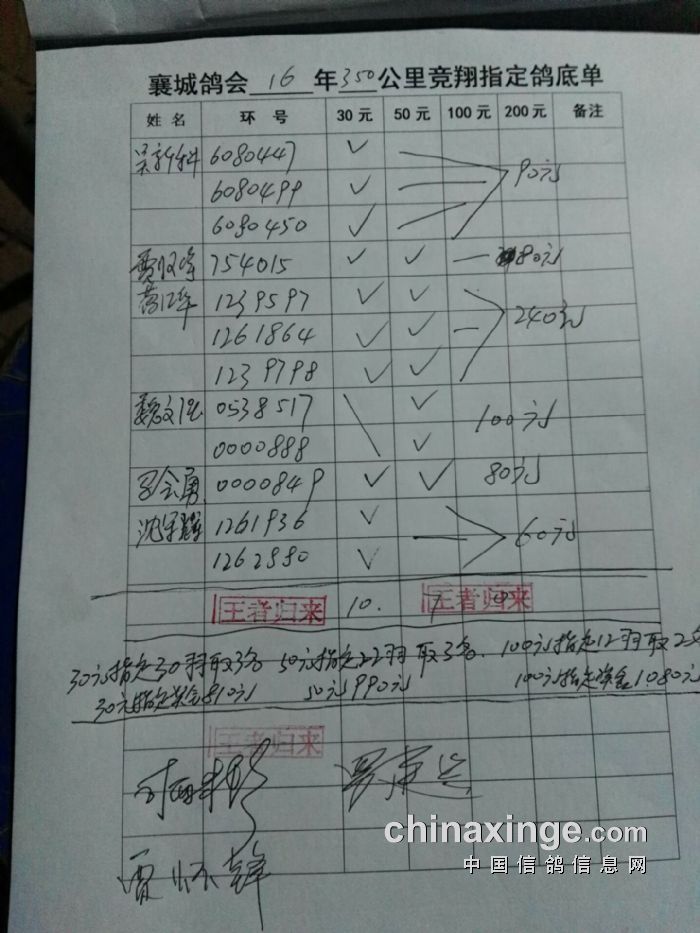 襄城鸽会 16 年 350 公里竞翔指定鸽底单
姓 名 环 号 30 元 50 元 100 元 200 元 备注
吴新科 6080447 ✓
6080499 ✓ 90元
6080450 ✓
754015 ✓ ✓ — 80元
1239597 ✓ ✓
1261864 ✓ ✓ — 240元
1239798 ✓ ✓
魏文 0538517 ✓
0000888 ✓ 100元
会勇 0000849 ✓ ✓ 80元
沈 1261936 ✓
1262880 ✓ — 60元
王者归来 10. 7 王者归来
30元指定30羽取3名 50元指定22羽取3名. 100元指定12羽取2名
30元指定奖金810元 50元990元 100元指定奖金1080元
王者归来
贾怀锋
chinaxinge.com
中国信鸽信息网